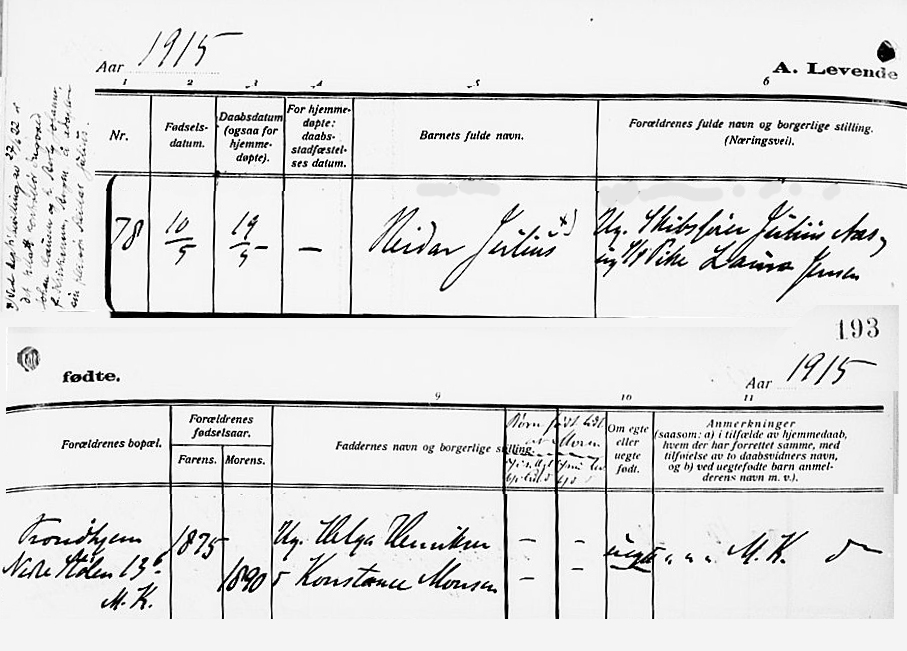 Aar 1915
A. Levende
1 2 3 4 5 6
Nr.
Fødsels-
datum.
Daabsdatum
(ogsaa for
hjemme-
døpte).
For hjemme-
døpte:
daabs-
stadfæstel-
ses datum.
Barnets fulde navn.
Forældrenes fulde navn og borgerlige stilling.
(Næringsvei).
78
10/5
19/5
—
Reidar Julius x)
Ug. Skibsfører Julius Aas,
ug Pike Laura Jensen
193
fødte.
Aar 1915
9 10 11
Forældrenes bopæl.
Forældrenes
fødselsaar.
Farens. Morens.
Faddernes navn og borgerlige stilling.
Børn født
av Moren
Om egte
eller
uegte
født.
Anmerkninger
(saasom: a) i tilfælde av hjemmedaab,
hvem der har forrettet samme, med
tilføielse av to daabsvidners navn,
og b) ved uegtefødte barn anmel-
derens navn m. v.).
Trondhjem
Nedre Stølen 13b
M.K.
1875
1890
Ug. Helga Henriksen
Konstance Monsen
— —
— —
uegte
M.K.